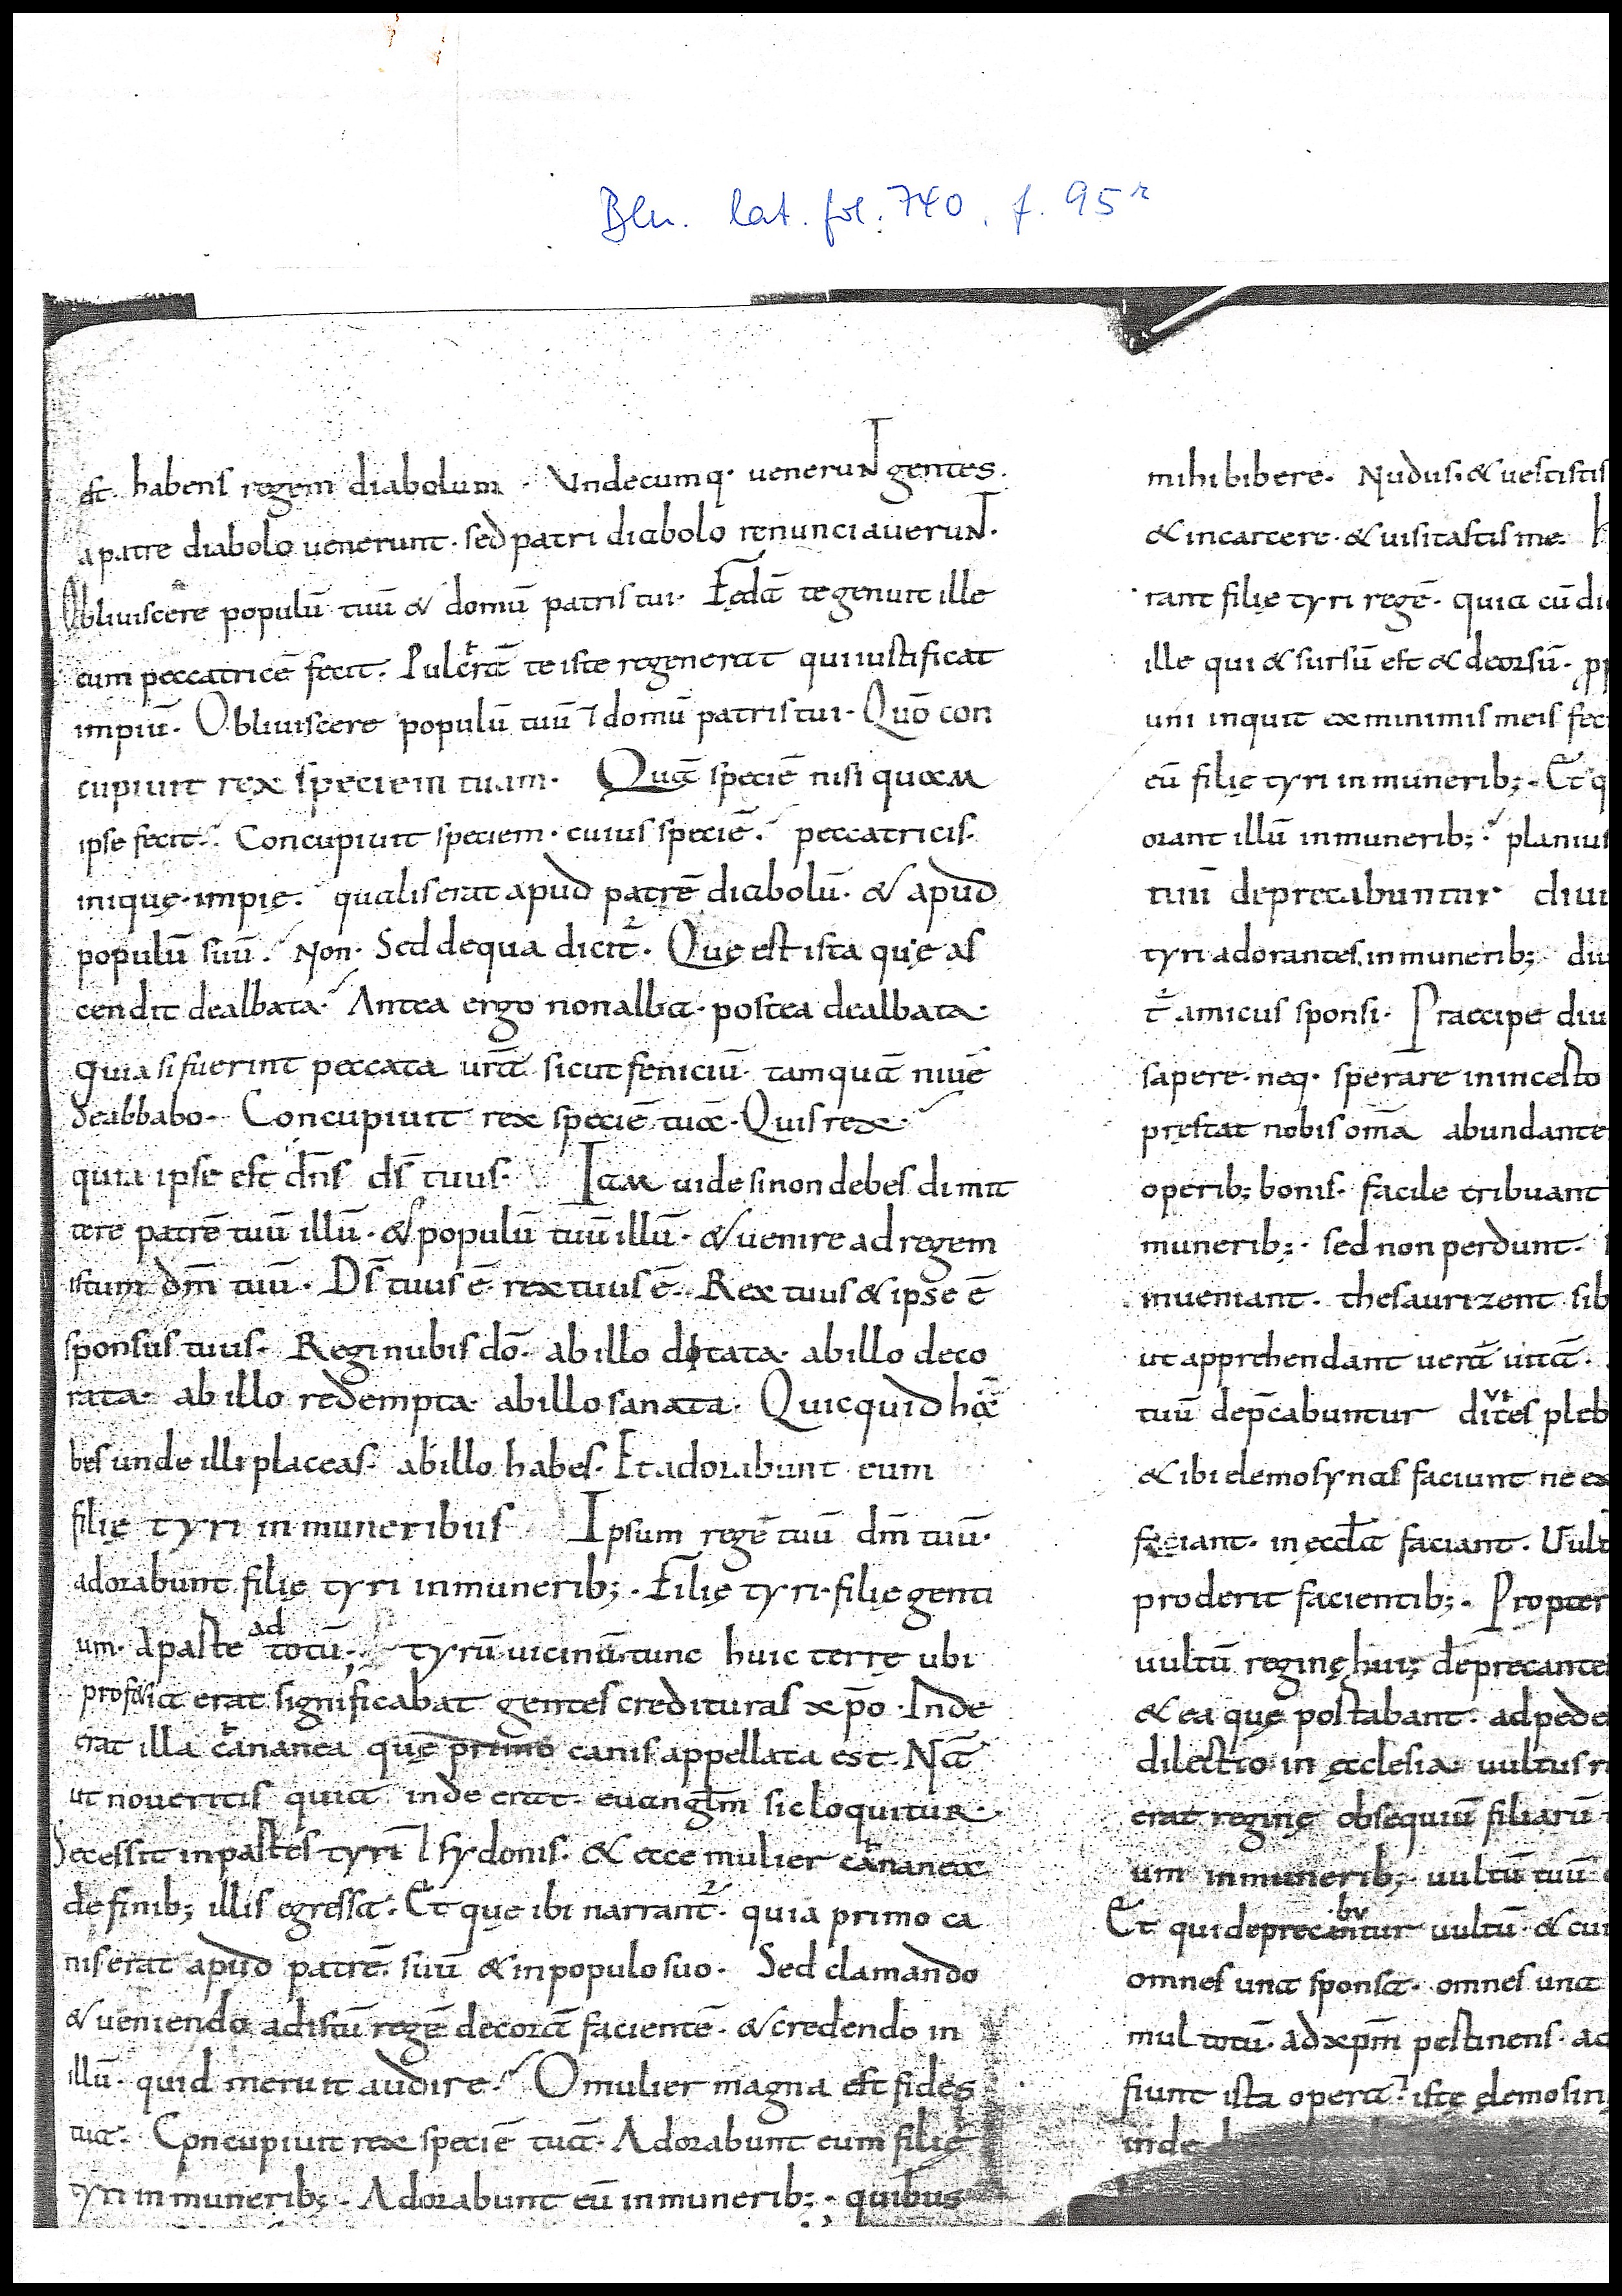 Bln. lat. fol. 740, f. 95r
est habens regem diabolum · Vndecumq· uenerunt gentes.
a patre diabolo uenerunt · sed patri diabolo renunciauerunt.
Obliuiscere populū tuū & domū patris tui · Fędā te genuit ille
cum peccatricē fecit. Pulcrā te iste regenerat qui iustificat
impiū. Obliuiscere populū tuū ⁊ domū patris tui · Quō con
cupiuit rex speciem tuam · Quā speciē nisi quam
ipse fecit. Concupiuit speciem · cuius speciē. peccatricis.
inique · impię. qualis erat apud patrē diabolū · & apud
populū suū. Non · Sed de qua dicit᷒ · Quę est ista quę as
cendit dealbata · Antea ergo non alba · postea dealbata ·
quia si fuerint peccata urā sicut feniciū · tamquā niuē
deabbabo · Concupiuit rex speciē tuā · Quis rex
quia ipse est dn̄s ds̄ tuus · Iam uide si non debes dimit
tere patrē tuū illū · & populū tuū illū · & uenire ad regem
istum dm̄ tuū · Ds̄ tuus ē · rex tuus ē · Rex tuus & ipse ē
sponsus tuus · Regi nubis dō · ab illo dotata · ab illo deco
rata · ab illo redempta · ab illo sanata · Quicquid ha
bes unde illi placeas · ab illo habes · Et adorabunt eum
filię tyri in muneribus Ipsum regē tuū dm̄ tuū ·
adorabunt filię tyri in munerib; · Filię tyri · filię genti
um · A parte ad totū; tyrū uicinū tunc huic terrę ubi
erat significabat gentes credituras xp̄o · Inde
erat illa cananea quę primo canis appellata est · Nā
ut noueritis quia inde erat · euanglm̄ sic loquitur ·
Secessit in partes tyri ł sydonis · & ecce mulier cananea
de finib; illis egressa · Et quę ibi narrant᷒ · quia primo ca
nis erat apud patrē suū & in populo suo · Sed clamando
& ueniendo ad istū regē decorā facientē · & credendo in
illū · quid meruit audire · O mulier magna est fides
tua · Concupiuit rex speciē tuā · Adorabunt eum filię
tyri in munerib; · Adorabunt eū in munerib; · quibus
mihi bibere · Nudus · & uestistis
& in carcere · & uisitastis me · h
rant filię tyri regē · quia cū di
ille qui & sursū est & deorsū ·
uni inquit ex minimis meis fec
eū filię tyri in munerib; · Et q
orant illū in munerib; · planius
tuū deprecabuntur diui
tyri adorantes in munerib; diu
t᷒ amicus sponsi · Praecipe diu
sapere · neq· sperare in incerto
prestat nobis omā abundante
operib; bonis · facile tribuant
munerib; · sed non perdunt ·
inueniant · thesaurizent sib
ut apprehendant uerā uitā ·
tuū dep̄cabuntur diuites pleb
& ibi elemosynas faciunt ne ex
faciant · in eccła faciant · Uult
proderit facientib; · Propter
uultū reginę hui; deprecante
& ea quę portabant · ad pede
dilectio in ecclesia · uultus r
erat reginę obsequiū filiarū
um in munerib; · uultū tuū
Et qui deprecabuntur uultū · & cui
omnes una sponsa · omnes una
mul totū · ad xpm̄ pertinens · ac
fiunt ista opera · istę elemosin
inde